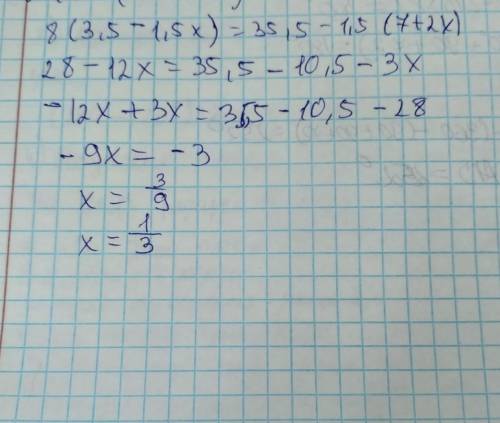 8(3,5 - 1,5x) = 35,5 - 1,5 (7+2x)
28 - 12x = 35,5 - 10,5 - 3x
-12x + 3x = 35,5 - 10,5 - 28
- 9x = -3
x = 3/9
x = 1/3